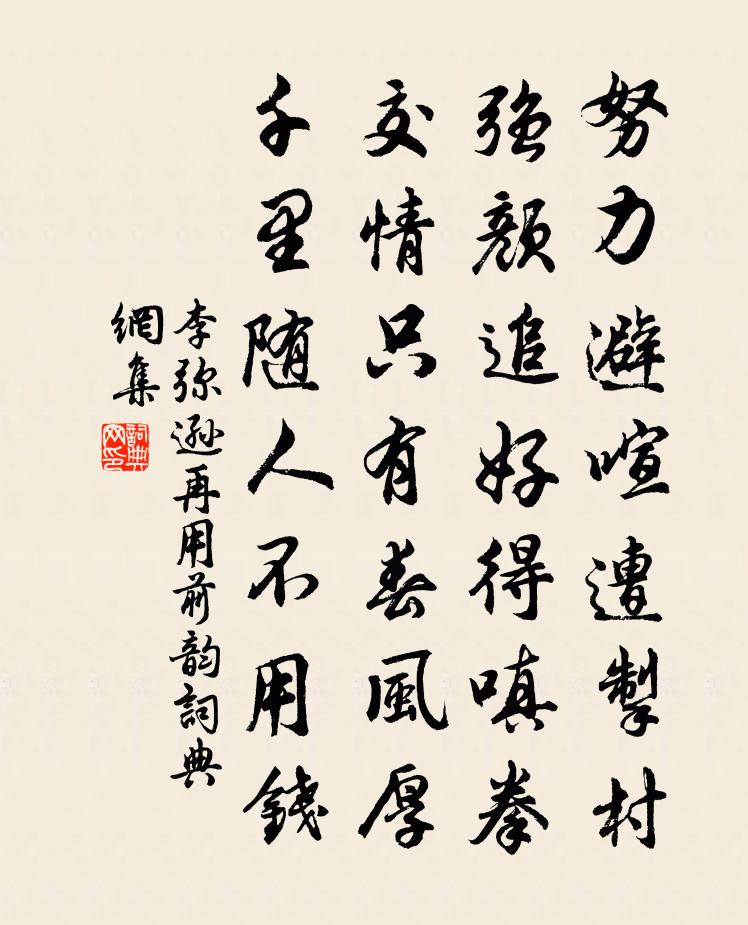 努力避喧遭掣村
强顏追好得嗔拳
交情只有春風厚
千里随人不用錢
李弥遜再用前韵詞典
網集
詞典网印